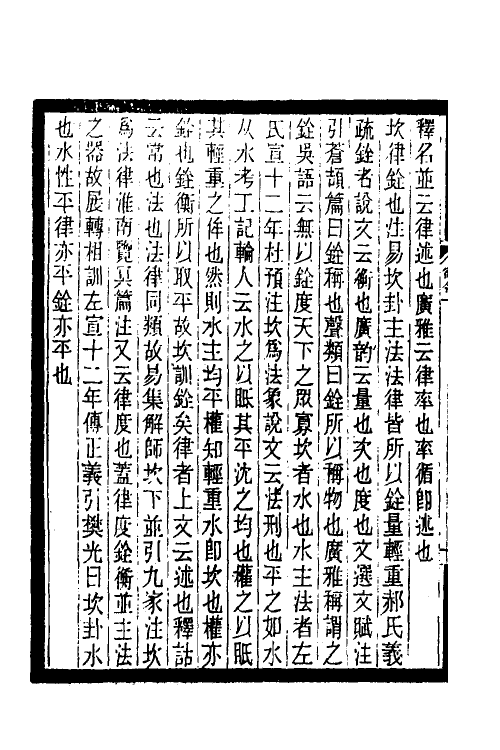 釋名並云律述也廣雅云律率也率循卽述也
坎律銓也注易坎卦主法法律皆所以銓量輕重郝氏義
疏銓者說文云衡也廣韵云量也次也度也文選文賦注
引蒼頡篇曰銓稱也聲類曰銓所以稱物也廣雅稱謂之
銓吳語云無以銓度天下之眾寡坎者水也水主法者左
氏宣十二年杜預注坎為法象說文云法刑也平之如水
从水考工記輪人云水之以眡其平沈之均也權之以眡
其輕重之侔也然則水主均平權知輕重水卽坎也權亦
銓也銓衡所以取平故坎訓銓矣律者上文云述也釋詁
云常也法也法律同類故易集解師坎下並引九家注坎
為法律淮南覽冥篇注又云律度也蓋律度銓衡並主法
之器故展轉相訓左宣十二年傳正義引樊光曰坎卦水
也水性平律亦平銓亦平也